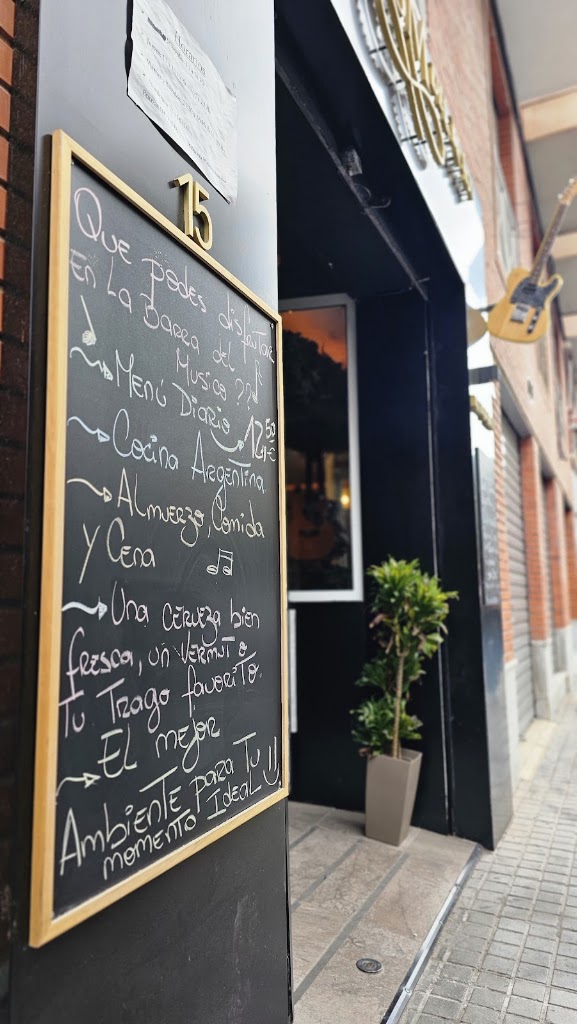 15
Que podes disfrutar
En La Barra del
Musico ??
Menú Diario 12,50€
Cocina Argentina
Almuerzo, Comida
y Cena
Una cerveza bien
fresca, un vermut o
Tu Trago favorito.
El mejor
Ambiente para Tu
momento Ideal